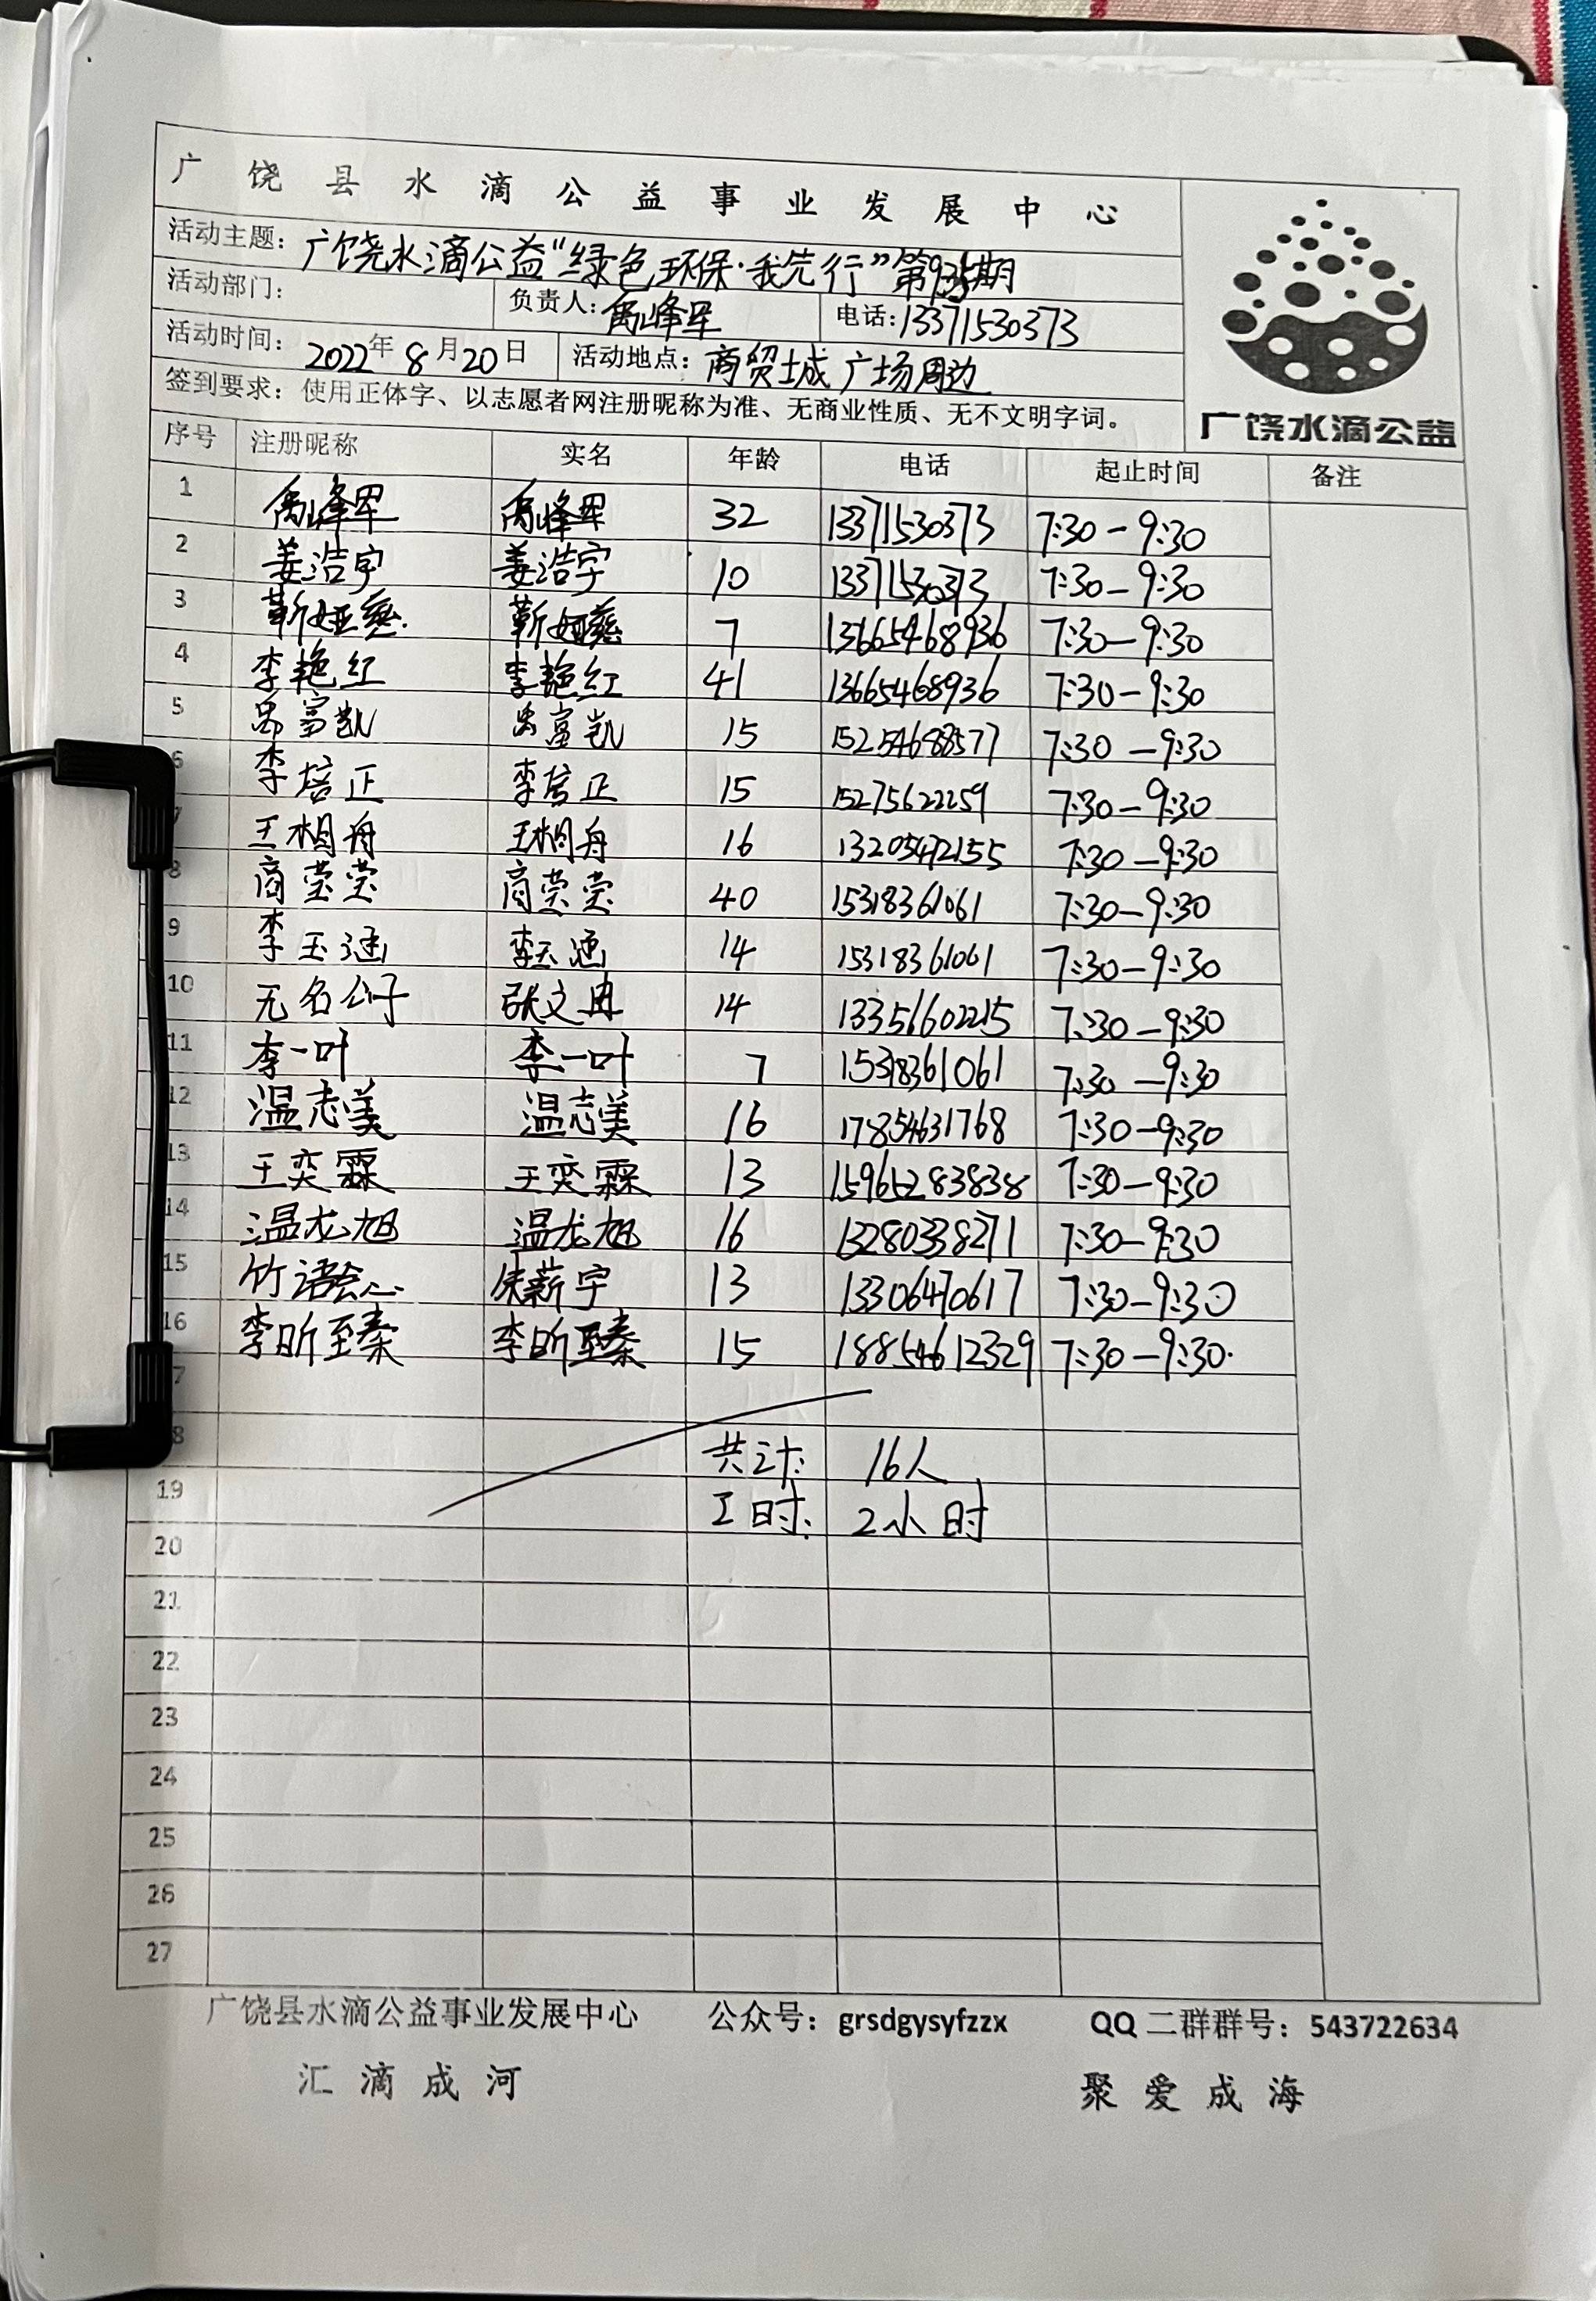 广饶县水滴公益事业发展中心
活动主题：广饶水滴公益“绿色环保·我先行”第 期
活动部门： 负责人：禹峰军 电话：13371530373
活动时间：2022年8月20日 活动地点：商贸城广场周边
签到要求：使用正体字、以志愿者网注册昵称为准、无商业性质、无不文明字词。
广饶水滴公益
序号 注册昵称 实名 年龄 电话 起止时间 备注
1 禹峰军 禹峰军 32 13371530373 7:30-9:30
2 姜浩宇 姜浩宇 10 13371530373 7:30-9:30
3 靳娅 靳娅 7 13665468936 7:30-9:30
4 李艳红 李艳红 41 13665468936 7:30-9:30
5 富凯 富凯 15 7:30-9:30
6 李培正 李培正 15 15275622259 7:30-9:30
7 王相舟 王相舟 16 13205472155 7:30-9:30
8 商莹莹 商莹莹 40 15318361061 7:30-9:30
9 李玉涵 李玉涵 14 15318361061 7:30-9:30
10 无名公子 张文冉 14 13356602215 7:30-9:30
11 李一叶 李一叶 7 15318361061 7:30-9:30
12 温志美 温志美 16 17854631768 7:30-9:30
13 王奕霖 王奕霖 13 15965283838 7:30-9:30
14 温龙旭 温龙旭 16 13280338271 7:30-9:30
15 竹语 13 13306470617 7:30-9:30
16 李昕至臻 李昕至臻 15 18854612329 7:30-9:30.
7
8 共计： 16人
19 工时： 2小时
20
21
22
23
24
25
26
27
广饶县水滴公益事业发展中心 公众号：grsdgysyfzzx QQ二群群号：543722634
汇滴成河 聚爱成海